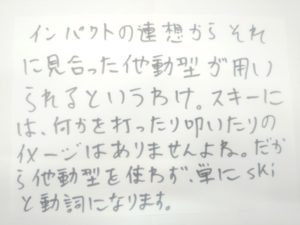 インパクトの連想から それ
に見合った他動型が用い
られるというわけ。スキーに
は、何かを打ったり叩いたりの
イメージはありませんよね。だか
ら他動型を使わず、単に ski
と動詞になります。